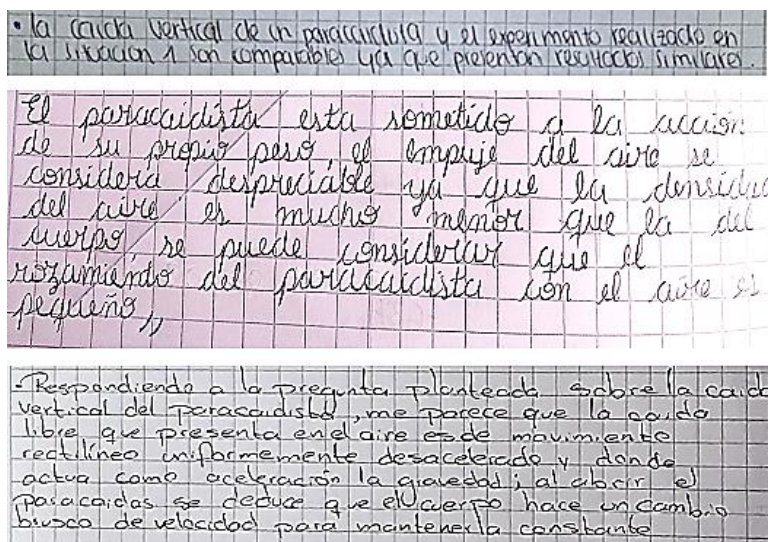 • la caida vertical de un paracaidista y el experimento realizado en
la situacion 1 son comparables ya que presentan resultados similares.
El paracaidista esta sometido a la acción
de su propio peso, el empuje del aire se
considera despreciable ya que la densidad
del aire es mucho menor que la del
cuerpo, se puede considerar que el
rozamiento del paracaidista con el aire es
pequeño,,
- Respondiendo a la pregunta planteada sobre la caida
vertical del paracaidista, me parece que la caida
libre que presenta en el aire es de movimiento
rectilíneo uniformemente desacelerado y donde
actua como aceleración la gravedad; al abrir el
paracaidas se deduce que el cuerpo hace un cambio
brusco de velocidad para mantenerla constante